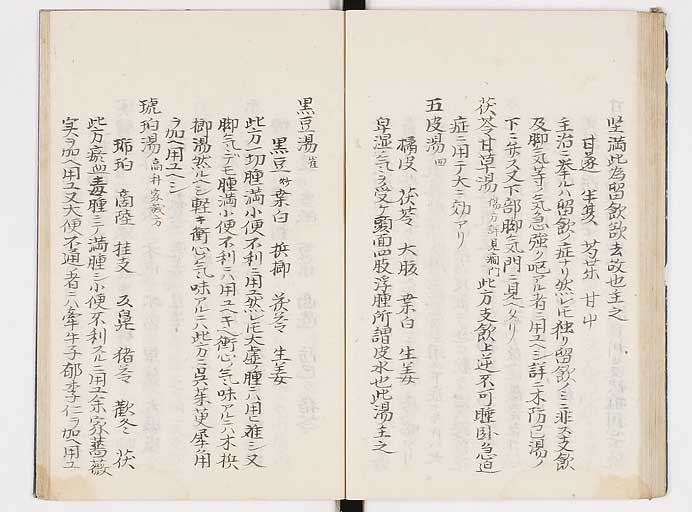 坚满此为留飲欲去故也主之
甘遂 半夏 芍药 甘中
主治ニ拳ルハ留飲ノ症ナリ然レ𪜈独リ留飲ノミニ非ス支飲
及脚気等ニ気急強ク呕アル者ニ用ユヘシ詳ニ木防己湯ノ
下ニ弁ス又下部脚気門ニ見ヘタリ
茯苓甘草湯 此方支飲上逆不可腫卧急迫
症ニ用テ大ニ効アリ
五皮湯 四
橘皮 茯苓 大腹 桑白 生姜
卑湿ノ気ヲ受ケ頭面四肢浮腫所謂皮水也此湯主之
黒豆湯
黒豆 桑白 梹榔 茯苓 生姜
此方一切腫満小便不利ニ用ユ然レ𪜈大虚ノ腫ニハ用ヒ難シ又
脚気ニテモ腫満小便不利ニハ用ユヘキヘ衝心ノ気味アルニハ木梹
榔湯然ルヘシ軽キ衝心ノ気味アルニハ此方ニ呉茱萸犀角
ヲ加ヘ用ユヘシ
琥珀湯 高井家蔵方
琥珀 商陸 桂支 反鼻 猪苓 歓冬 茯
此方瘀血毒腫ニテ満腫シ小便不利スルニ用ユ余家薔薇
実ヲ加ヘ用ユ又大便不通者ニハ牽牛子郁李仁ヲ加ヘ用ユ